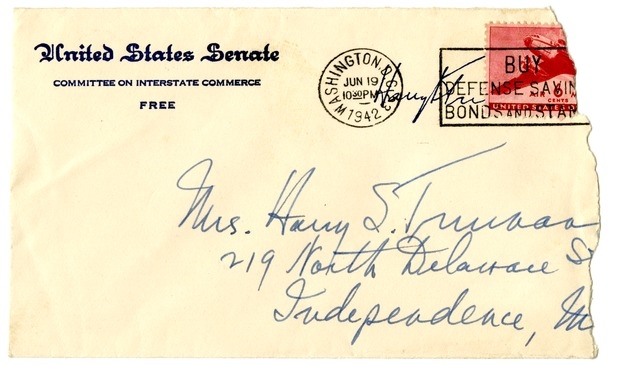 United States Senate
COMMITTEE ON INTERSTATE COMMERCE
FREE
WASHINGTON, D.C.
JUN 19
10 30 PM
1942
Harry
BUY
DEFENSE SAVIN
BONDS AND STAM
AIR
CENTS
UNITED STATES O
Mrs. Harry S. Truman
219 North Delaware S
Independence, M